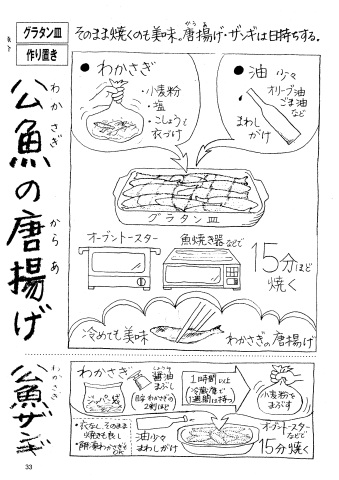 グラタン皿
作り置き
そのまま焼くのも美味。唐揚げ・ザンギは日持ちする。
からあ
公魚の唐揚げ
わかさぎ
からあ
●わかさぎ
・小麦粉
・塩
・こしょうで
衣づけ
●油 少々
オリーブ油
ごま油
など
まわし
がけ
グラタン皿
オーブントースター
魚焼き器などで
15分ほど
焼く
冷めても美味
わかさぎの唐揚げ
公魚ザンギ
わかさぎ
わかさぎ
ジッパー袋
しょうゆ
醤油
まぶし
目安 わかさぎの
2割ほど
1時間以上
冷蔵庫で
1週間は持つ
小麦粉を
まぶす
・衣なし、そのまま
焼きも良し
油少々
まわしがけ
オーブントースター
などで
15分焼く
33